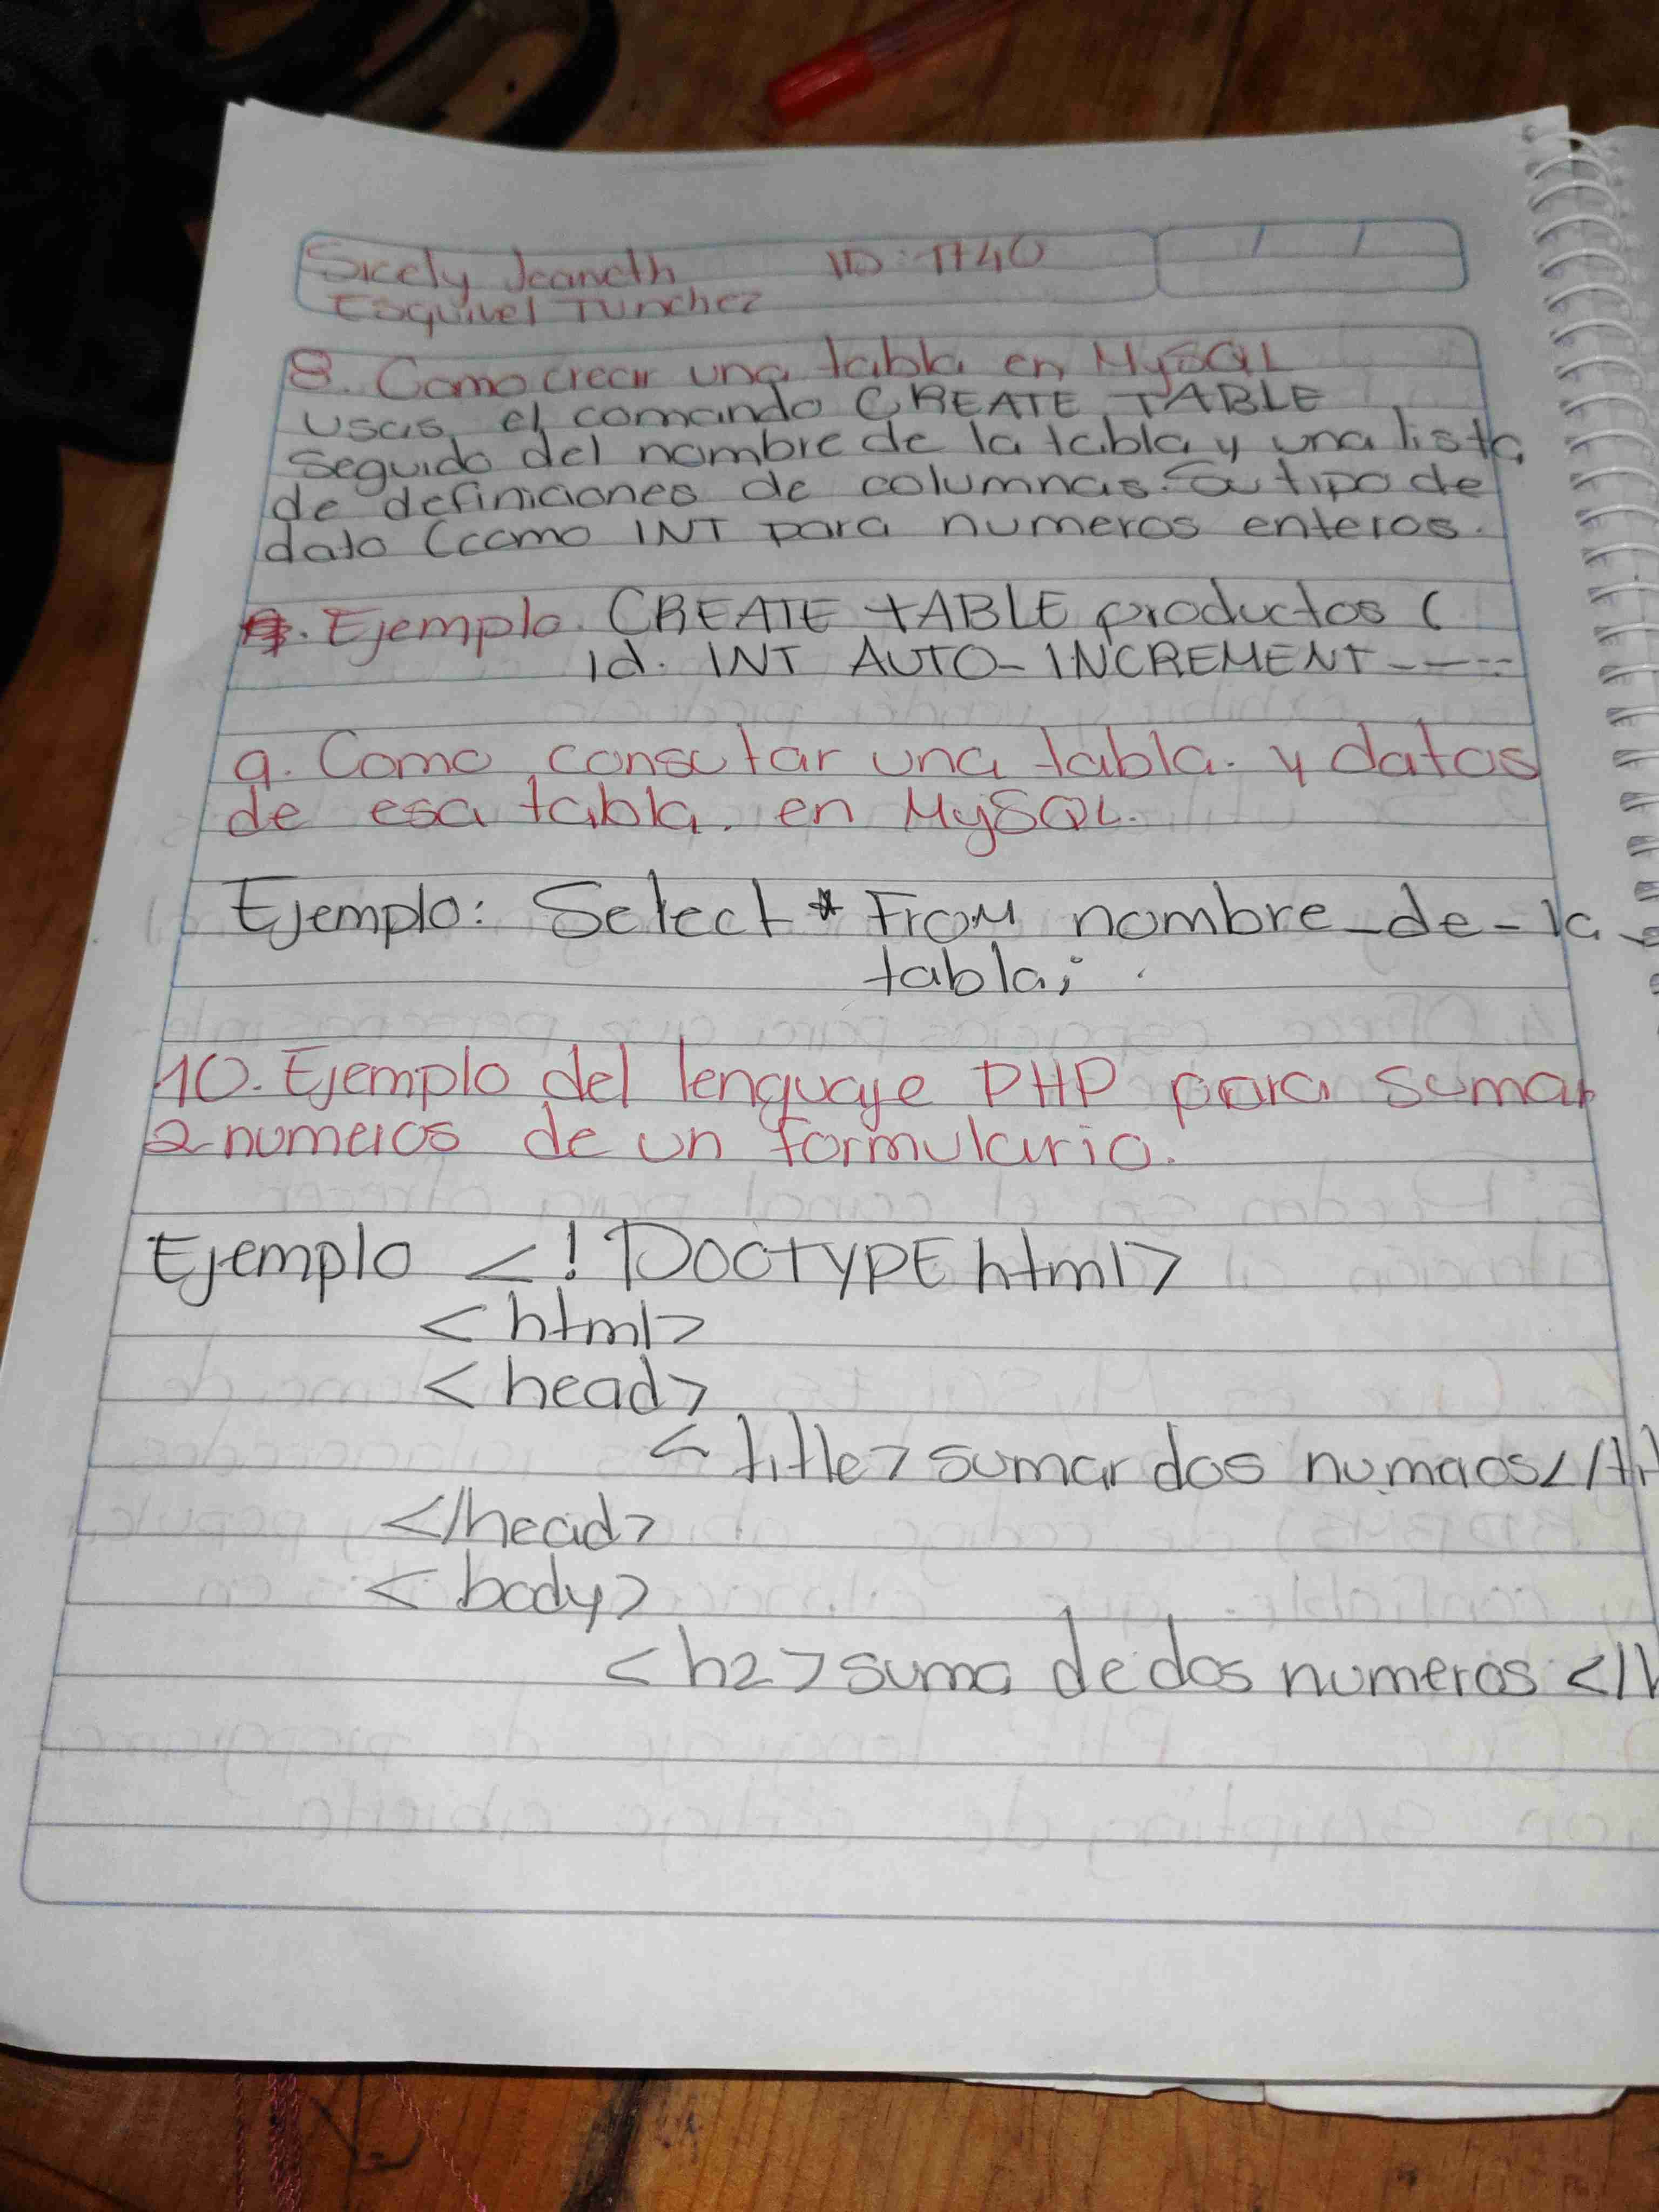 Sicely Jeaneth ID: 1740
Esquivel Tunchez
8. Como crear una tabla en MySQL
usas el comando CREATE TABLE
seguido del nombre de la tabla y una lista
de definiciones de columnas. Su tipo de
dato (como INT para numeros enteros.
. Ejemplo. CREATE tABLE productos (
id. INT AUTO-INCREMENT -----
9. Como consutar una tabla. y datos
de esa tabla. en MySQL.
Ejemplo: Select * From nombre_de-la-
tabla;
10. Ejemplo del lenguaje PHP para sumar
2 numeros de un formulario.
Ejemplo <! DOCTYPE html>
<html>
<head>
<title> sumar dos numeros</tit
</head>
<body>
<h2> suma de dos numeros </h